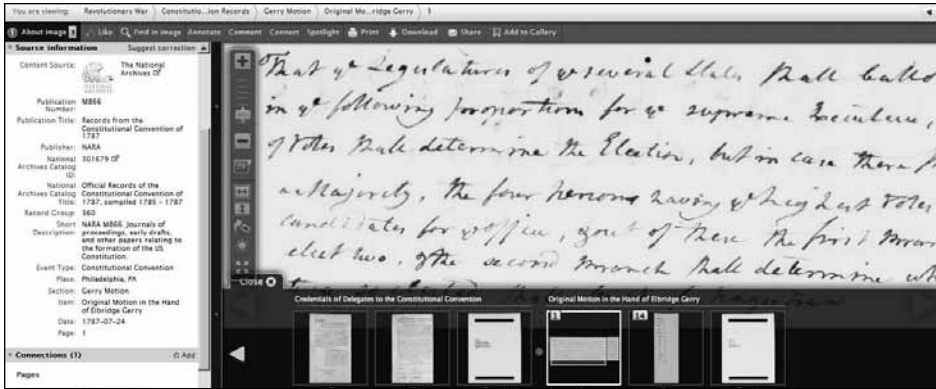 You are viewing: Revolutionary War Constitutio...ion Records Gerry Motion Original Mo...ridge Gerry 1
About image 1 Like Find in image Annotate Comment Connect Spotlight Print Download Share Add to Gallery
Source information Suggest correction
Content Source: The National
Archives
NATIONAL
ARCHIVES
Publication M866
Number:
Publication Title: Records from the
Constitutional Convention of
1787
Publisher: NARA
National 301679
Archives Catalog
ID:
National Official Records of the
Archives Catalog Constitutional Convention of
Title: 1787, compiled 1785 - 1787
Record Group: 360
Short NARA M866. Journals of
Description: proceedings, early drafts,
and other papers relating to
the formation of the US
Constitution.
Event Type: Constitutional Convention
Place: Philadelphia, PA
Section: Gerry Motion
Item: Original Motion in the Hand
of Elbridge Gerry
Date: 1787-07-24
Page: 1
Connections (1) Add
Pages
That ye Legislatures of ye several States shall ballo
in ye following proportions for ye supreme
of Votes shall determine the Election, but in case there
a Majority, the four persons having ye highest Votes
candidates for ye office, & out of these the first
elect two, & the second Branch shall determine
Close
Credentials of Delegates to the Constitutional Convention Original Motion in the Hand of Elbridge Gerry
1 14